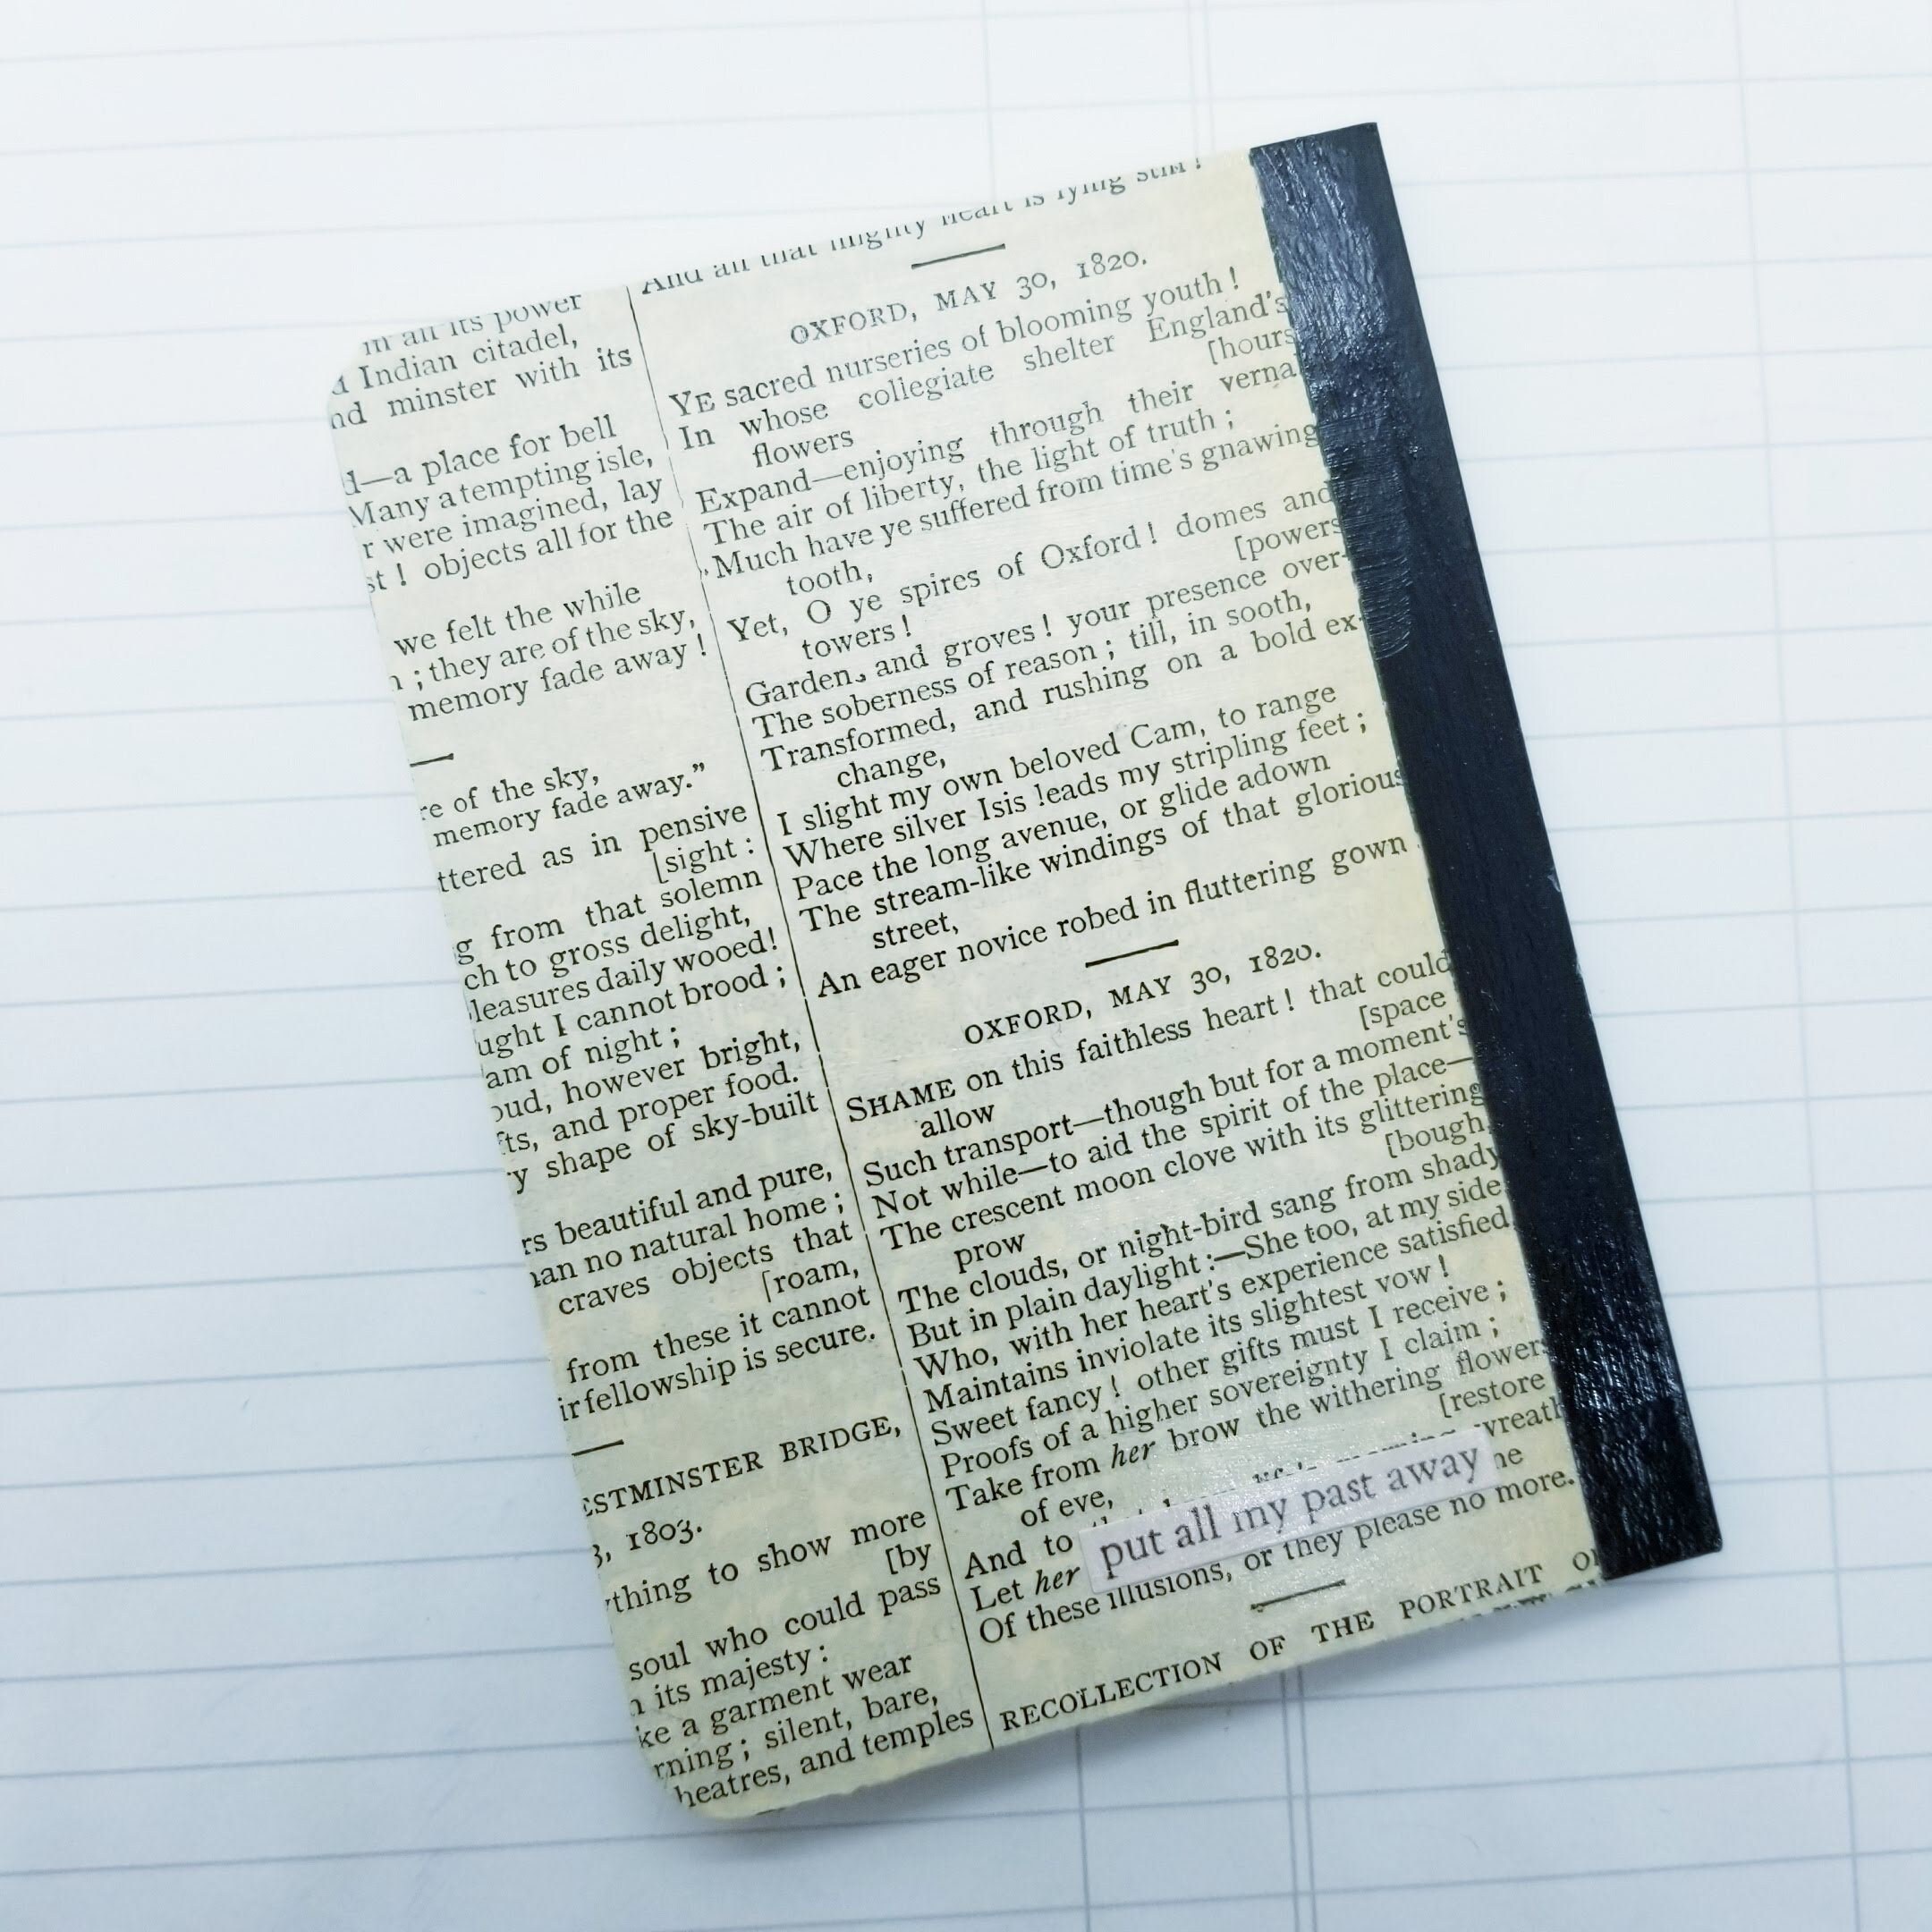 m all its power
Indian citadel,
nd minster with its
d—a place for bell
Many a tempting isle,
r were imagined, lay
st ! objects all for the
we felt the while
n ; they are of the sky,
memory fade away !
re of the sky,
memory fade away.”
ttered as in pensive
[sight :
g from that solemn
ch to gross delight,
leasures daily wooed!
ught I cannot brood ;
am of night ;
oud, however bright,
fts, and proper food.
y shape of sky-built
rs beautiful and pure,
han no natural home ;
craves objects that
[roam,
from these it cannot
ir fellowship is secure.
ESTMINSTER BRIDGE,
3, 1803.
thing to show more
[by
soul who could pass
n its majesty :
ke a garment wear
rning ; silent, bare,
heatres, and temples
And all that mighty heart is lying still !
OXFORD, MAY 30, 1820.
YE sacred nurseries of blooming youth !
In whose collegiate shelter England's
flowers [hours
Expand—enjoying through their vernal
The air of liberty, the light of truth ;
Much have ye suffered from time's gnawing
tooth,
Yet, O ye spires of Oxford ! domes and
towers ! [powers
Garden, and groves ! your presence over-
The soberness of reason ; till, in sooth,
Transformed, and rushing on a bold ex-
change,
I slight my own beloved Cam, to range
Where silver Isis leads my stripling feet ;
Pace the long avenue, or glide adown
The stream-like windings of that glorious
street,
An eager novice robed in fluttering gown
OXFORD, MAY 30, 1820.
SHAME on this faithless heart ! that could
allow [space
Such transport—though but for a moment's
Not while—to aid the spirit of the place—
The crescent moon clove with its glittering
prow [bough,
The clouds, or night-bird sang from shady
But in plain daylight :—She too, at my side
Who, with her heart's experience satisfied,
Maintains inviolate its slightest vow !
Sweet fancy ! other gifts must I receive ;
Proofs of a higher sovereignty I claim ;
Take from her brow the withering flowers
of eve, [restore
And to wreath
Let her
put all my past away
Of these illusions, or they please no more.
RECOLLECTION OF THE PORTRAIT OF